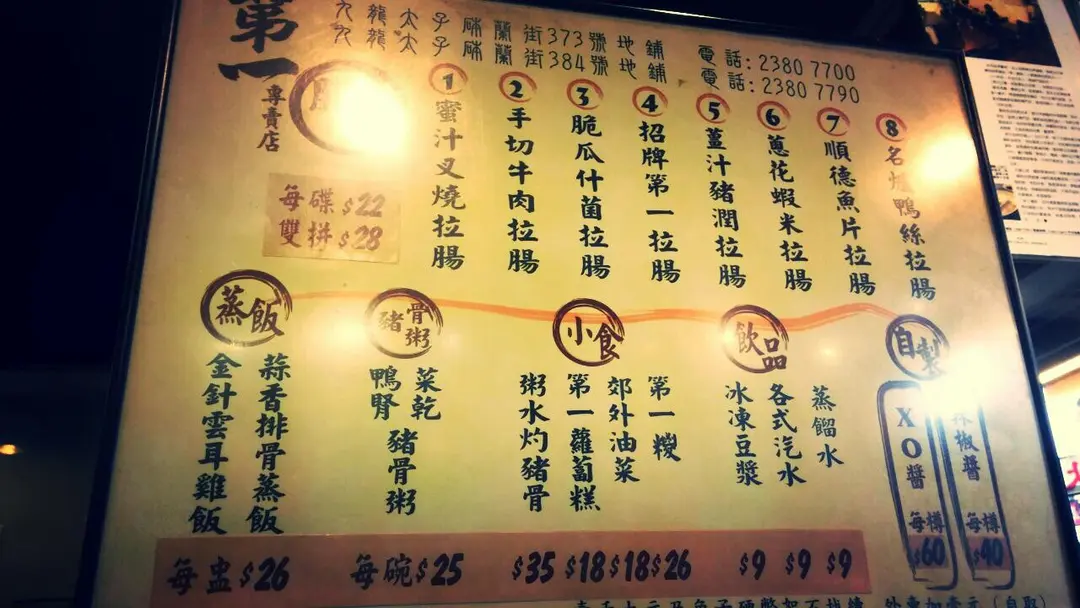 第一
專賣店
九龍太子砵蘭街373號地鋪 電話:2380 7700
九龍太子砵蘭街384號地鋪 電話:2380 7790
每碟$22
雙拼$28
1 蜜汁叉燒拉腸
2 手切牛肉拉腸
3 脆瓜什菌拉腸
4 招牌第一拉腸
5 薑汁豬潤拉腸
6 蔥花蝦米拉腸
7 順德魚片拉腸
8 名爐鴨絲拉腸
蒸飯
蒜香排骨蒸飯
金針雲耳雞飯
每盅$26
豬骨粥
菜乾
鴨腎
豬骨粥
每碗$25
小食
第一糉
郊外油菜
第一蘿蔔糕
粥水灼豬骨
$35 $18 $18 $26
飲品
蒸餾水
各式汽水
冰凍豆漿
$9 $9 $9
自製
XO醬
每樽
$60
辣椒醬
每樽
$40